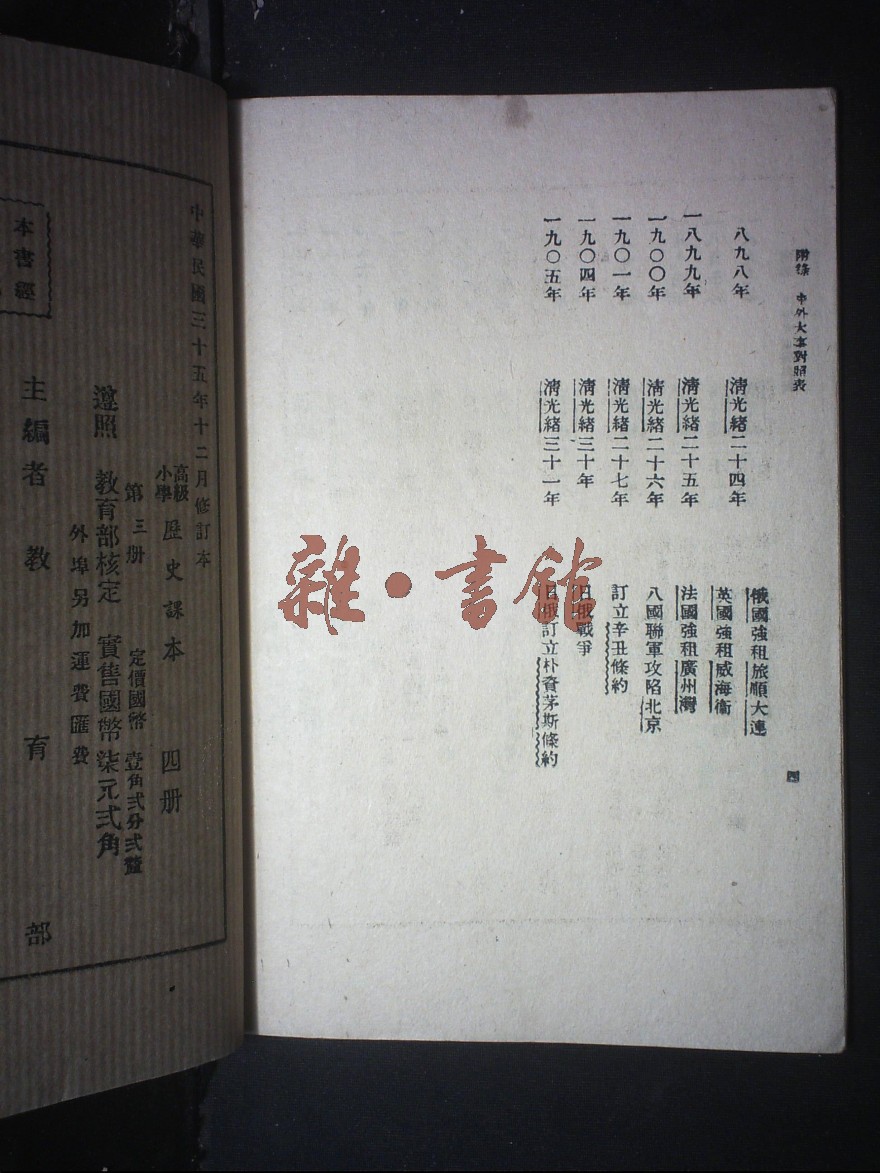 附錄　中外大事對照表
八九八年　清光緒二十四年　俄國強租旅順大連
英國強租威海衛
一八九九年　清光緒二十五年　法國強租廣州灣
一九〇〇年　清光緒二十六年　八國聯軍攻陷北京
一九〇一年　清光緒二十七年　訂立辛丑條約
一九〇四年　清光緒三十年　日俄戰爭
一九〇五年　清光緒三十一年　日俄訂立朴資茅斯條約
四
雜·書館
中華民國三十五年十二月修訂本
高級小學　歷史課本　四册
第三册　定價國幣　壹角弍分弍釐
遵照　教育部核定　實售國幣柒元弍角
外埠另加運費匯費
主編者　教育部
本書經